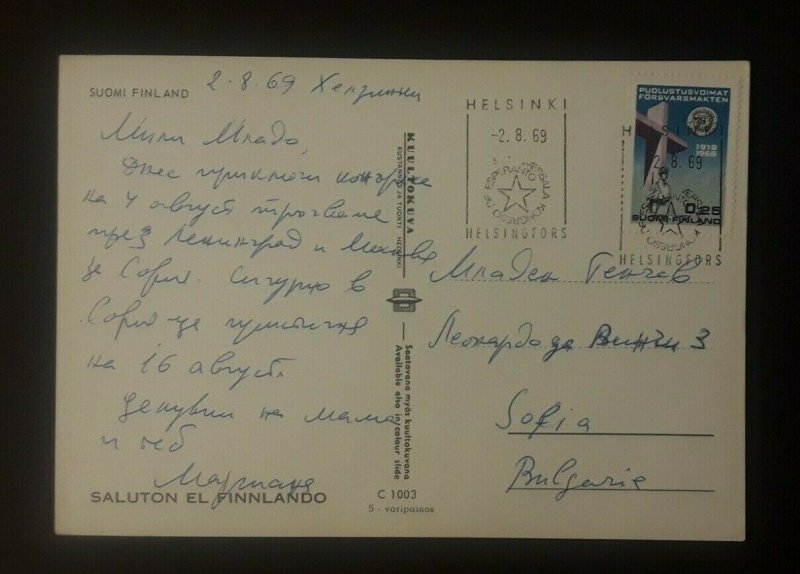 SUOMI FINLAND
2.8.69 Хелзинки
Мили Младо,
Днес приключи конгреса
на 4 август тръгваме
през Ленинград и Москва
за София. Сигурно в
София ще пристигна
на 16 август.
Целувки на мама
и теб
SALUTON EL FINNLANDO
KUULTOKUVA
KUSTANTAJA JA TUONTI HELSINKI
Saatavana myös kuultokuvana
Available also in/colour slide
C 1003
S - varipainos
HELSINKI
-2.8.69
UNIVERSALA KONGRESO DE ESPERANTO
HELSINGFORS
PUOLUSTUSVOIMAT
FÖRSVARSMAKTEN
1918
1968
0,25
SUOMI-FINLAND
HELSINKI
2.8.69
HELSINGFORS
Младен Генчев
Леонардо да Винчи 3
Sofia
Bulgarie